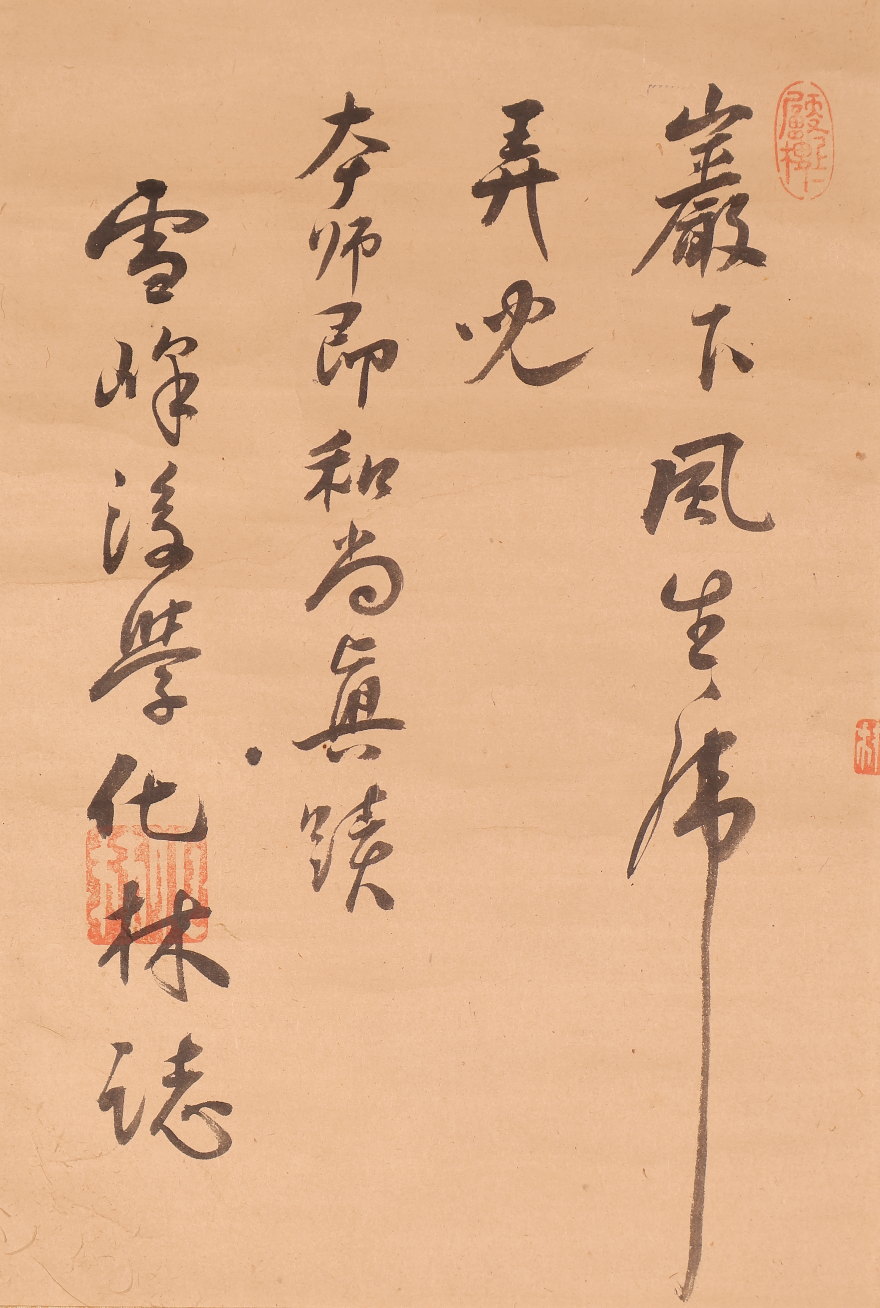 巖下風生虎
弄兒
本师即和尚真蹟
雪峰後學化林誌